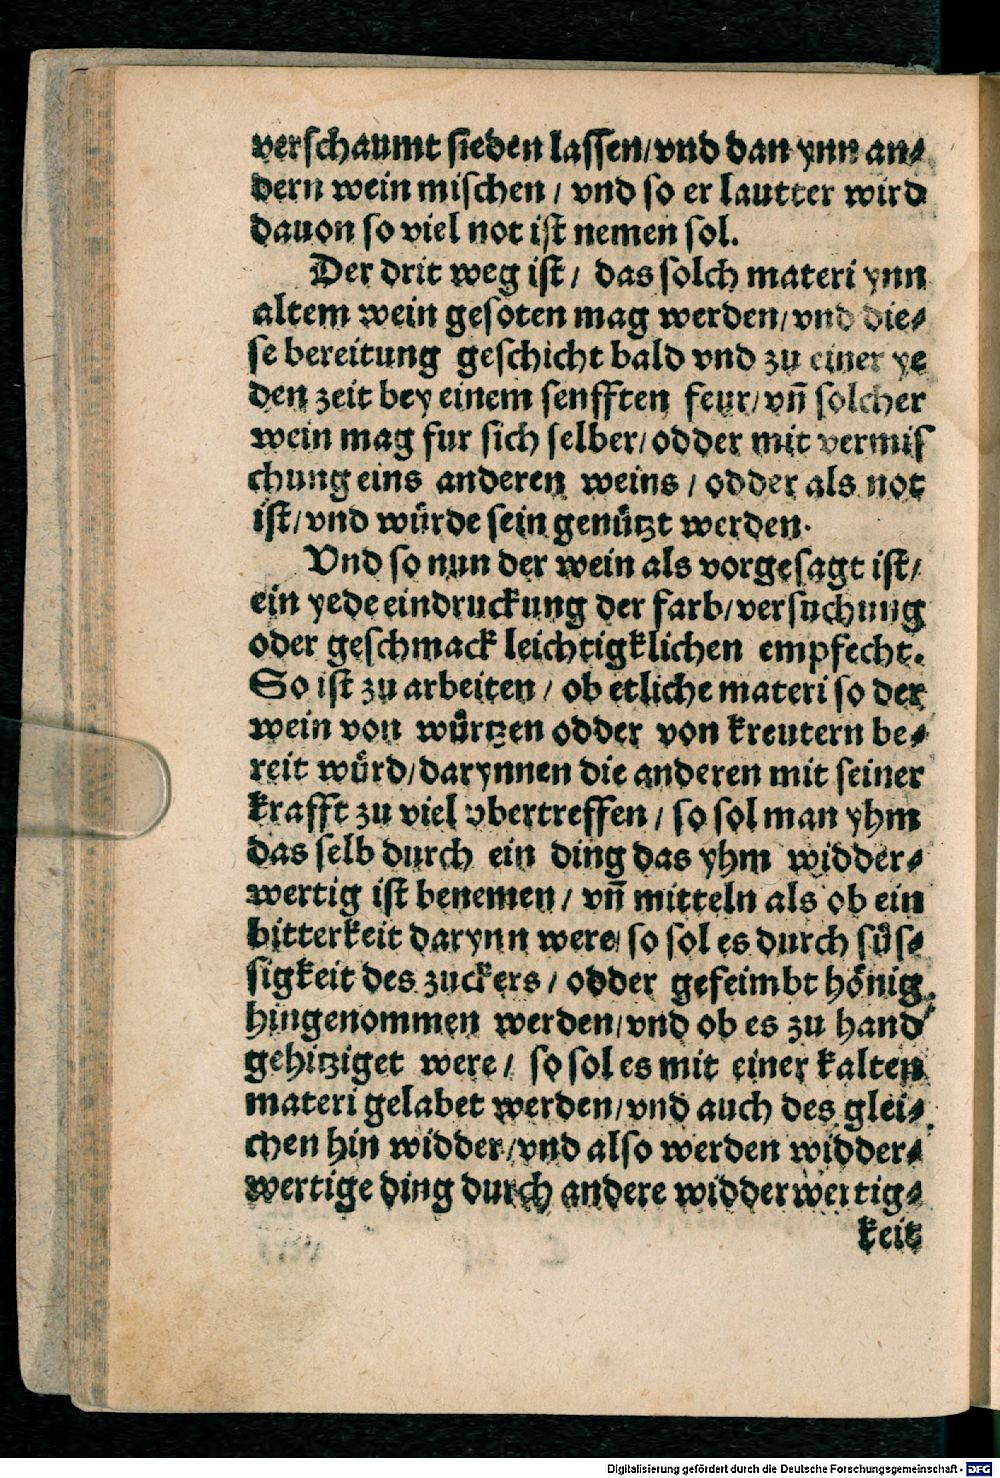 verschaumt sieden lassen/vnd dan ynn an⸗
dern wein mischen / vnd so er lautter wird
dauon so viel not ist nemen sol.
Der drit weg ist / das solch materi ynn
altem wein gesoten mag werden/vnd die⸗
se bereitung geschicht bald vnd zu einer ye
den zeit bey einem senfften feur/vn̄ solcher
wein mag fur sich selber/odder mit vermis
chung eins anderen weins / odder als not
ist/vnd wuͤrde sein genuͤtzt werden.
Vnd so nun der wein als vorgesagt ist/
ein yede eindruckung der farb/versuchung
oder geschmack leichtigklichen empfecht.
So ist zu arbeiten / ob etliche materi so der
wein von wuͤrtzen odder von kreutern be⸗
reit wuͤrd/darynnen die anderen mit seiner
krafft zu viel vbertreffen / so sol man yhm
das selb durch ein ding das yhm widder⸗
wertig ist benemen / vn̄ mitteln als ob ein
bitterkeit darynn were/ so sol es durch suͤs⸗
sigkeit des zuckers / odder gefeimbt hoͤnig
hingenommen werden/vnd ob es zu hand
gehitziget were / so sol es mit einer kalten
materi gelabet werden/vnd auch des glei⸗
chen hin widder/vnd also werden widder⸗
wertige ding durch andere widderwertig⸗
keit
Digitalisierung gefördert durch die Deutsche Forschungsgemeinschaft - DFG